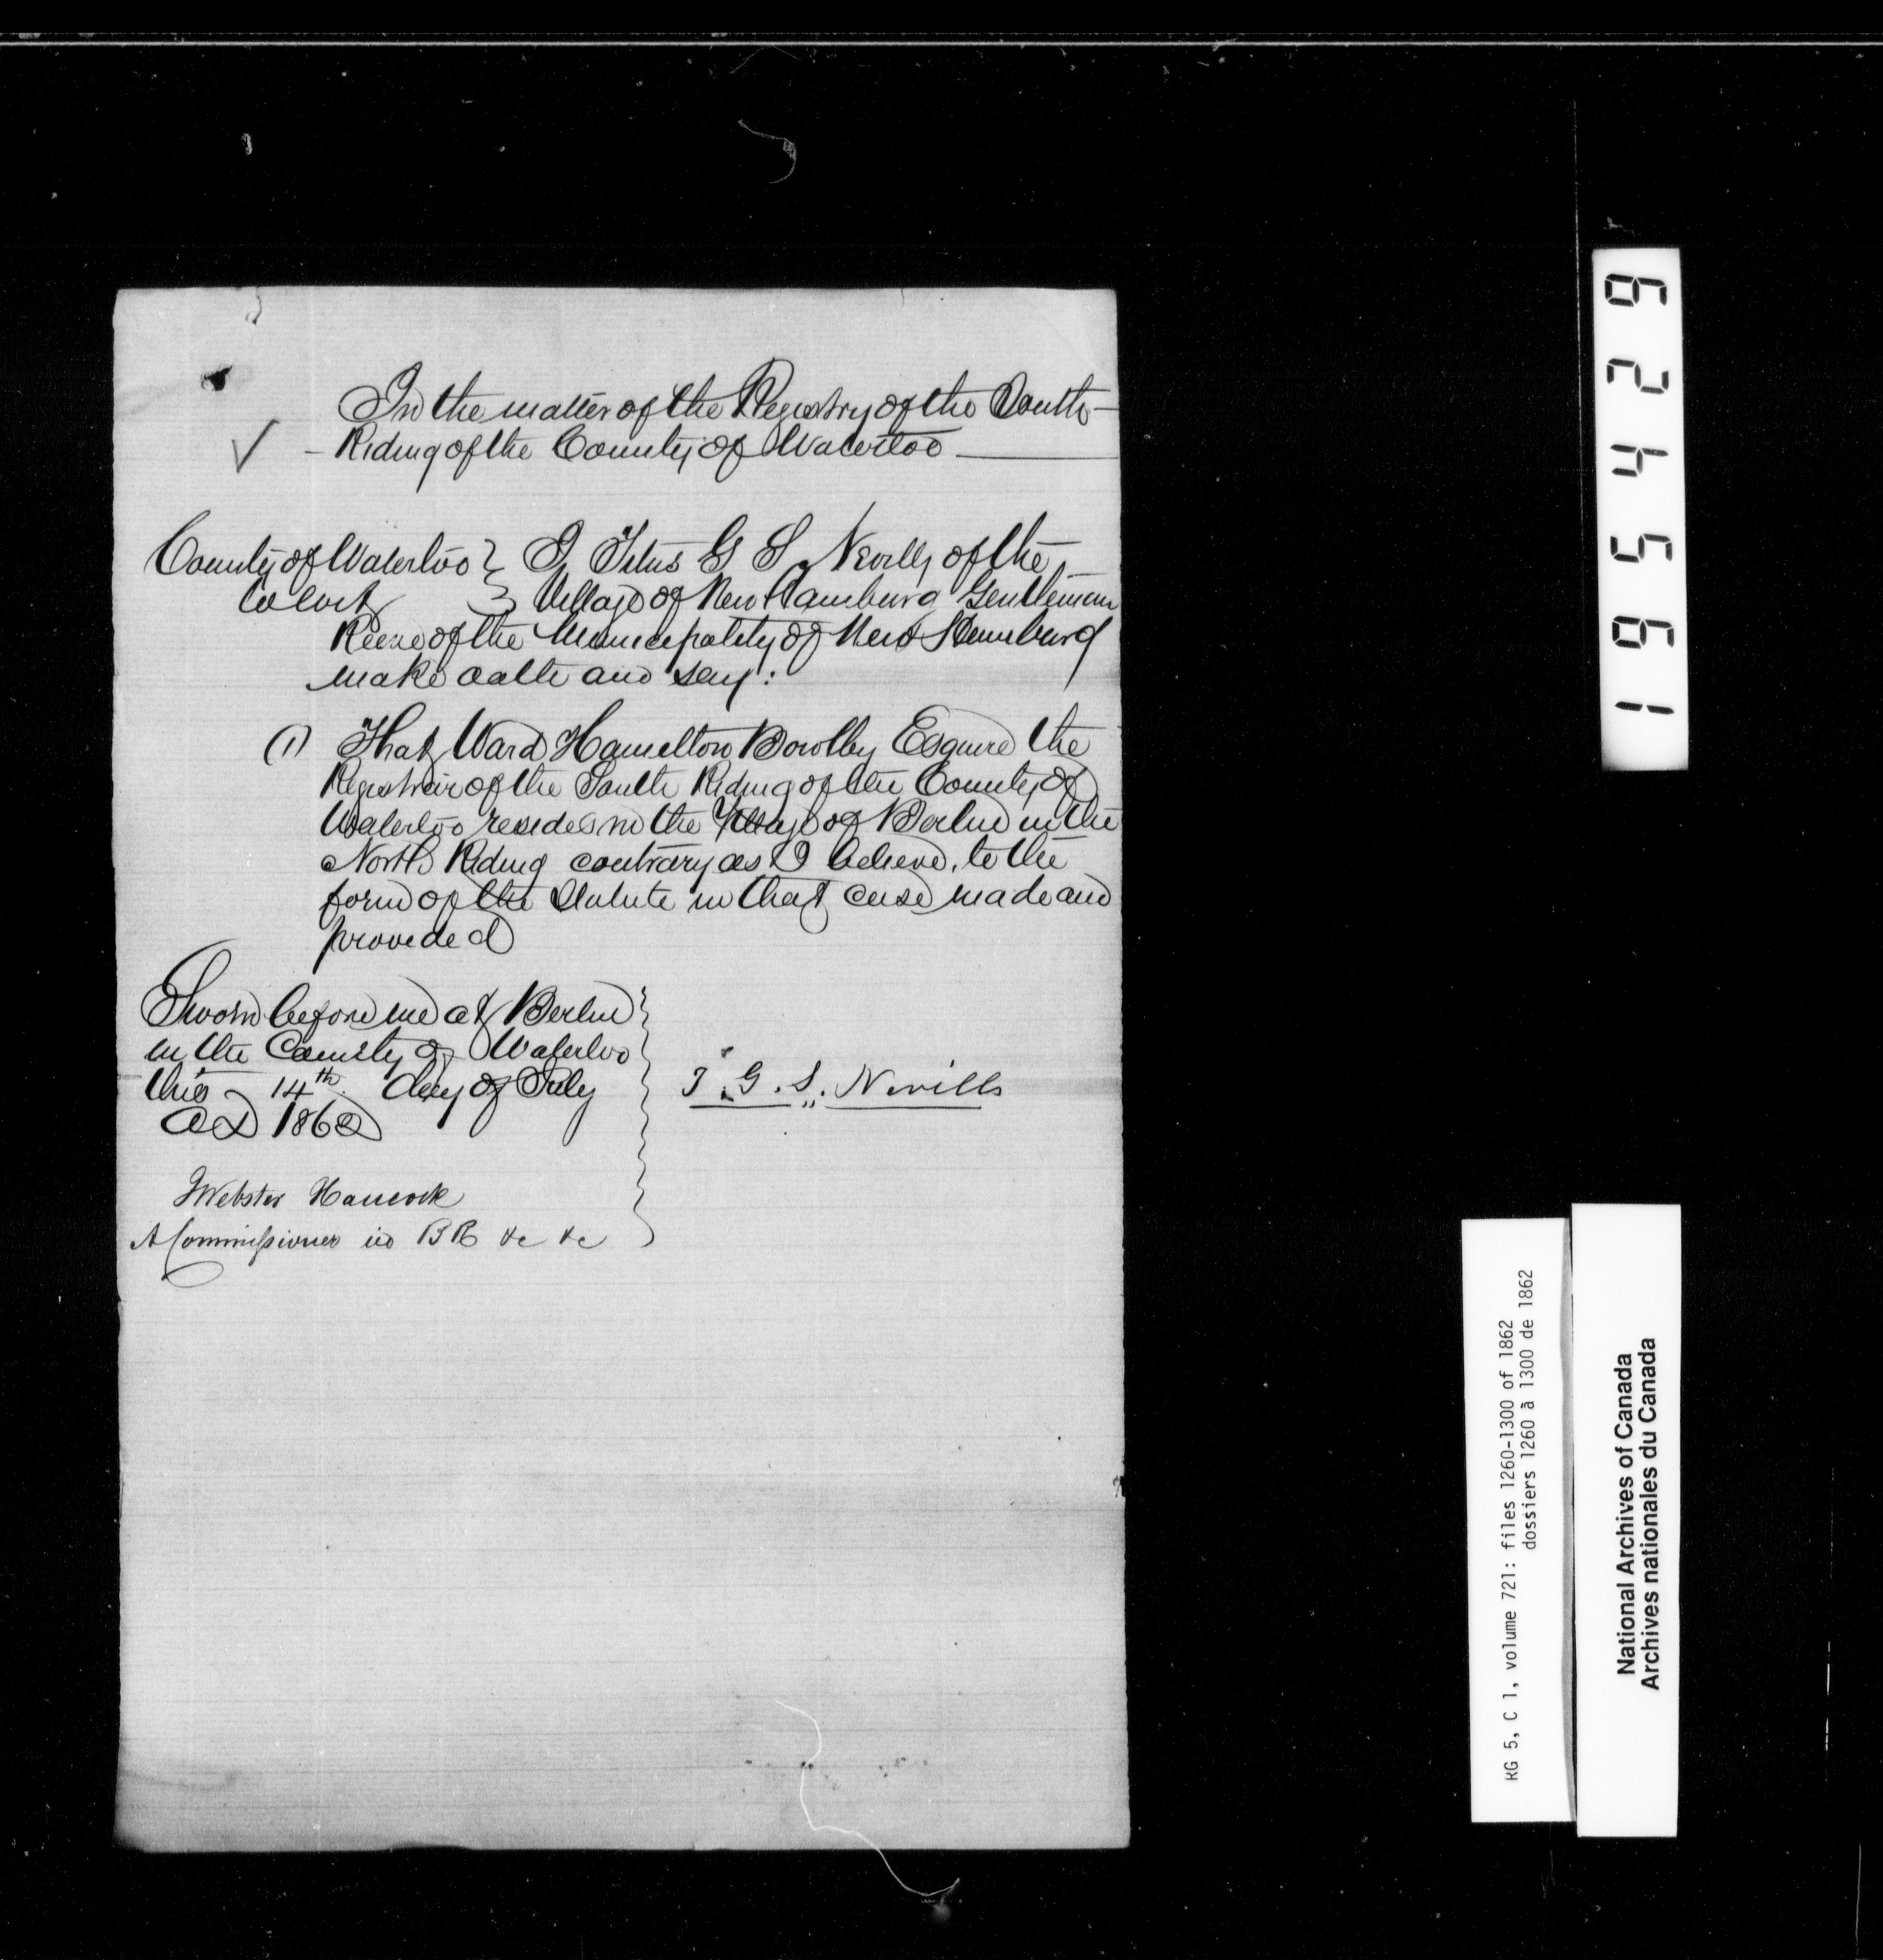 In the matter of the Registry of the South
Riding of the County of Waterloo
County of Waterloo } I Titus G S Nevills of the
to wit } Village of New Hamburg Gentleman
Reeve of the Municipality of New Hamburg
make oath and say:
(1) That Ward Hamilton Bowlby Esquire the
Registrar of the South Riding of the County of
Waterloo resides in the Village of Berlin in the
North Riding contrary as I believe, to the
form of the Statute in that case made and
provided
Sworn before me at Berlin
in the County of Waterloo
this 14th day of July
AD 1862
T. G. S. Nevills
Webster Hancock
A Commissioner in BR &c &c
195429
RG 5, C 1, volume 721: files 1260-1300 of 1862
dossiers 1260 à 1300 de 1862
National Archives of Canada
Archives nationales du Canada